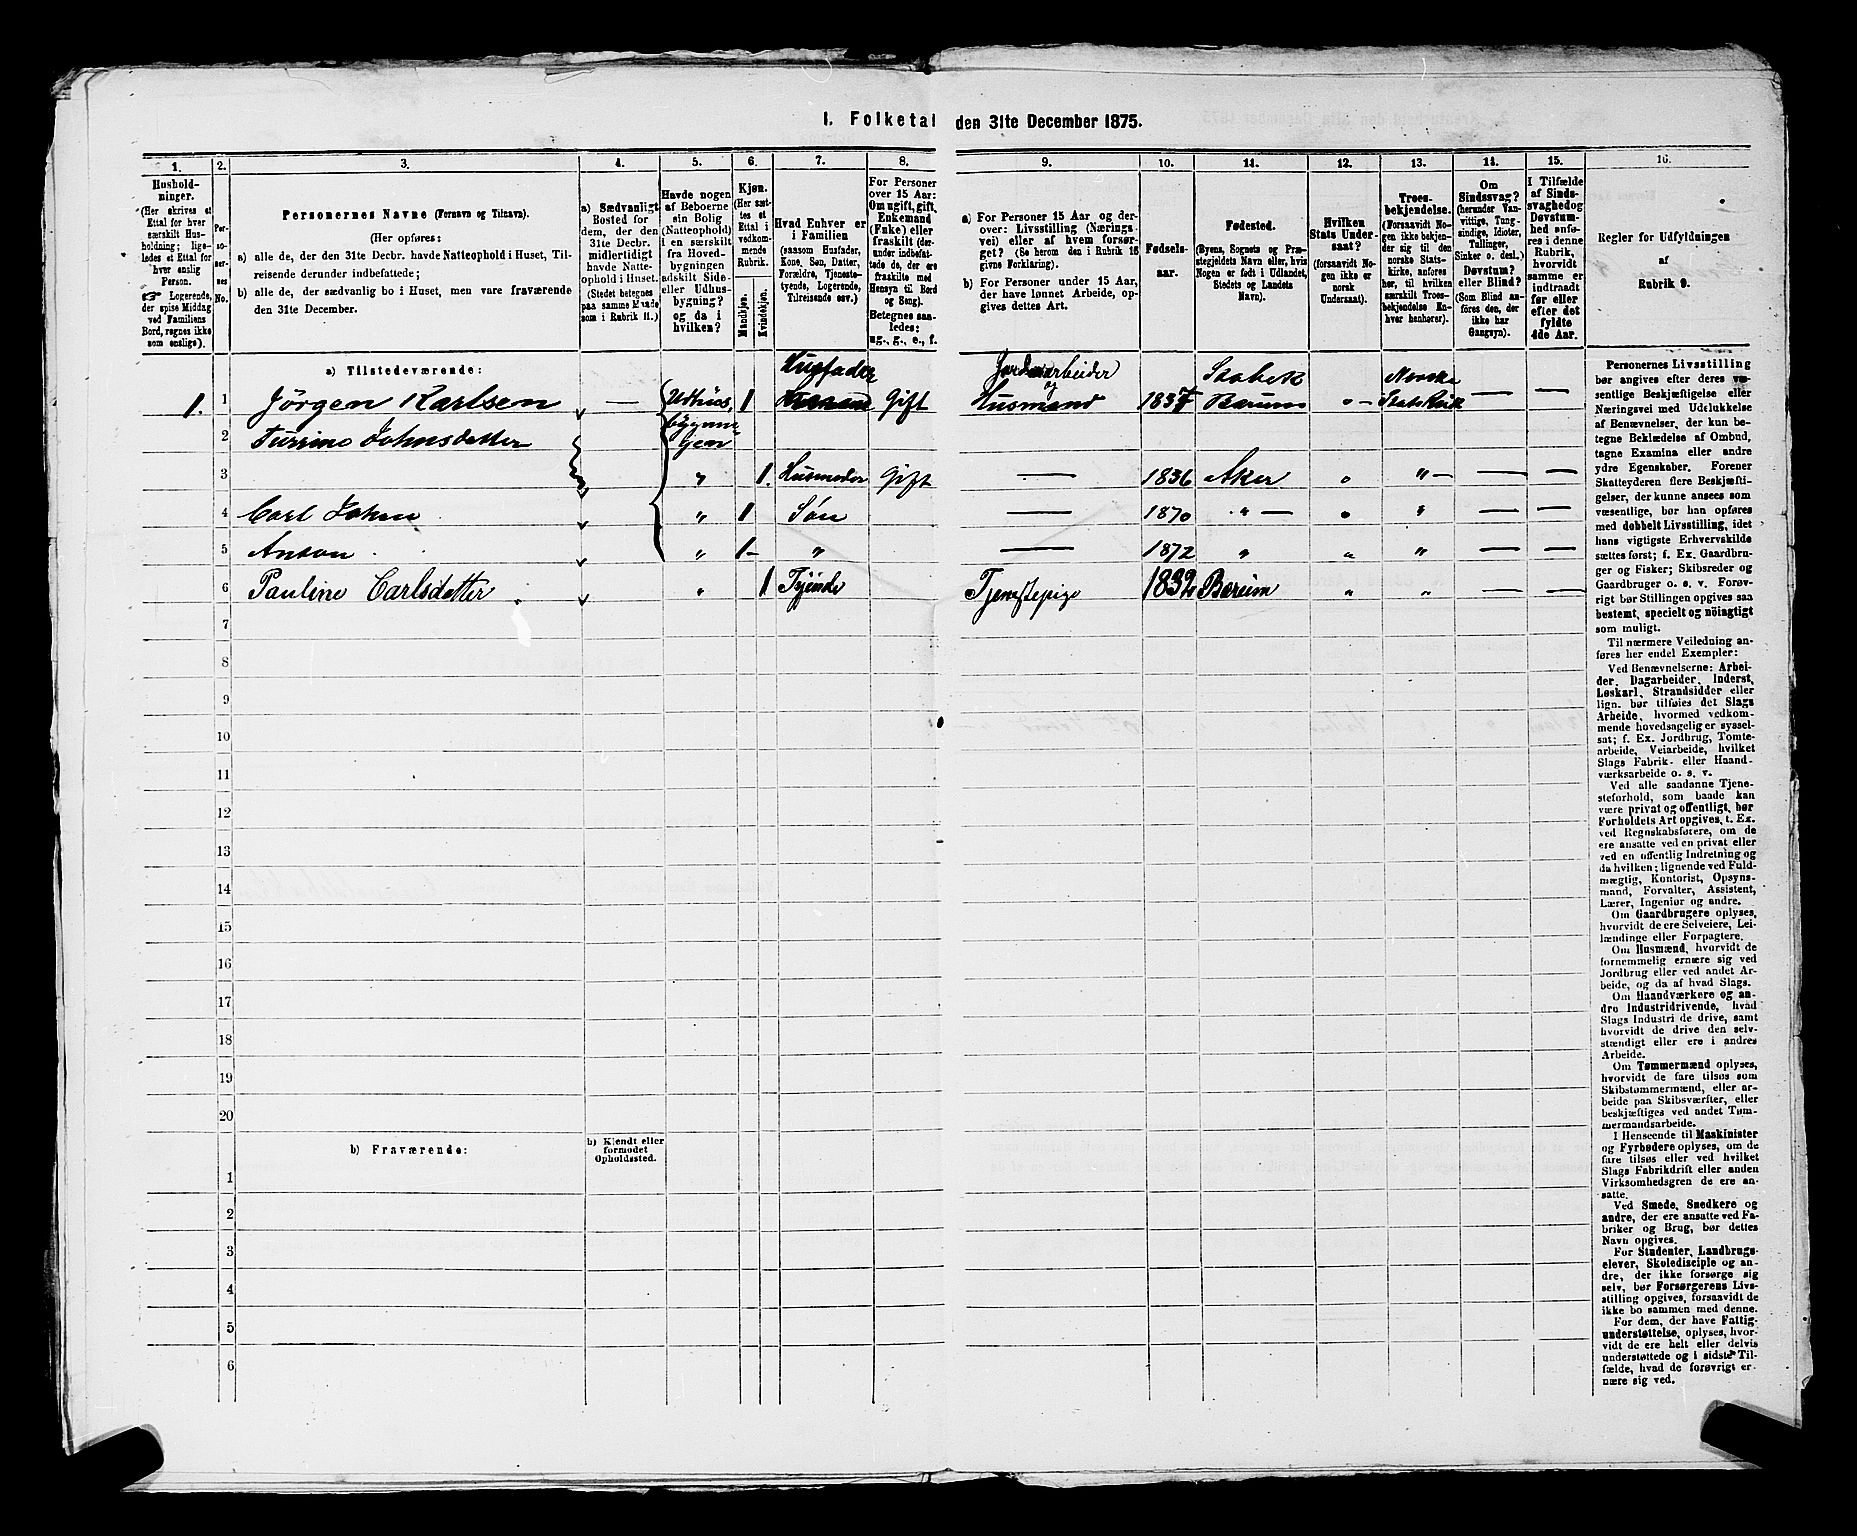 1. Folketal den 31te December 1875.
1.
2.
3.
4.
5.
6.
7.
8.
9.
10.
11.
12.
13.
14.
15.
16.
Hushold-
ninger.
(Her skrives et
Ettal for hver
særskilt Hus-
holdning; lige-
ledes et Ettal for
hver enslig
Person.
☞ Logerende,
der spise Middag
ved Familiens
Bord, regnes ikke
som enslige).
Per-
so-
ner-
nes
No.
Personernes Navne (Fornavn og Tilnavn).
(Her opføres:
a) alle de, der den 31te Decbr. havde Natteophold i Huset, Til-
reisende derunder indbefattede;
b) alle de, der sædvanlig bo i Huset, men vare fraværende
den 31te December.
a) Sædvanligt
Bosted for
dem, der den
31te Decbr.
midlertidigt
havde Natte-
ophold i Huset.
(Stedet betegnes
paa samme Maade
som i Rubrik 11.)
Havde nogen
af Beboerne
sin Bolig
(Natteophold)
i en særskilt
fra Hoved-
bygningen
adskilt Side-
eller Udhus-
bygning?
og da i
hvilken?
Kjøn.
(Her sæt-
tes et
Ettal i
vedkom-
mende
Rubrik.
Mandkjøn.
Kvindekjøn.
Hvad Enhver er
i Familien
(saasom Husfader,
Kone, Søn, Datter,
Forældre, Tjeneste-
tyende, Logerende,
Tilreisende osv.)
For Personer
over 15 Aar:
Om ugift, gift,
Enkemand
(Enke) eller
fraskilt (der-
under indbefat-
tede de, der ere
fraskilte med
Hensyn til Bord
og Seng).
Betegnes saa-
ledes:
ug., g., e., f.
a) For Personer 15 Aar og der-
over: Livsstilling (Nærings-
vei) eller af hvem forsør-
get? (Se herom den i Rubrik 16
givne Forklaring).
b) For Personer under 15 Aar,
der have lønnet Arbeide, op-
gives dettes Art.
Fødsels-
aar.
Fødested.
(Byens, Sognets og Præ-
stegjeldets Navn eller, hvis
Nogen er født i Udlandet,
Stedets og Landets
Navn).
Hvilken
Stats Under-
saat?
(forsaavidt No-
gen ikke er
norsk
Undersaat).
Troes-
bekjendelse.
(Forsaavidt No-
gen ikke bekjen-
der sig til den
norske Stats-
kirke, anføres
her, til hvilken
særskilt Troes-
bekjendelse En-
hver henhører).
Om
Sindssvag?
(herunder Van-
vittige, Tung-
sindige, Idioter,
Tullinger,
Sinker o. desl.)
Døvstum?
eller Blind?
(Som Blind an-
føres den, der
ikke har
Gangsyn).
I Tilfælde
af Sinds-
svaghed og
Døvstum-
hed anfø-
res i denne
Rubrik,
hvorvidt
samme er
indtraadt
før eller
efter det
fyldte
4de Aar.
Regler for Udfyldningen
af
Rubrik 9.
a) Tilstedeværende:
1. 1 Jörgen Karlsen — Udhus, 1 Husfader Gift Jordarbeider og Husmand 1837 Stabek Bærum Norske Statskirk — —
byggnin-
gen
2 Johnsdatter
3 " 1. Husmoder Gift — 1836 Aker " — — —
4 Carl Johan " 1 Søn — 1870 " — " — —
5 Anton " 1- " — 1872 " " " — —
6 Pauline Carlsdatter " 1 Tjende Tjenestepige 1832 Bærum " " — —
7
8
9
10
11
12
13
14
15
16
17
18
19
20
b) Fraværende:
b) Kjendt eller
formodet
Opholdssted.
1
2
3
4
5
6
Personernes Livsstilling
bør angives efter deres væ-
sentlige Beskjæftigelse eller
Næringsvei med Udelukkelse
af Benævnelser, der kun be-
tegne Beklædelse af Ombud,
tagne Examina eller andre
ydre Egenskaber. Forener
Skatteyderen flere Beskjæfti-
gelser, der kunne ansees som
væsentlige, bør han opføres
med dobbelt Livsstilling, idet
hans vigtigste Erhvervskilde
sættes først; f. Ex. Gaardbru-
ger og Fisker; Skibsreder og
Gaardbruger o. s. v. Forøv-
rigt bør Stillingen opgives saa
bestemt, specielt og nöiagtigt
som muligt.
Til nærmere Veiledning an-
føres her endel Exempler:
Ved Benævnelserne: Arbei-
der, Dagarbeider, Inderst,
Løskarl, Strandsidder eller
lign. bør tilføies det Slags
Arbeide, hvormed vedkom-
mende hovedsagelig er syssel-
sat; f. Ex. Jordbrug, Tomte-
arbeide, Veiarbeide, hvilket
Slags Fabrik- eller Haand-
værksarbeide o. s. v.
Ved alle saadanne Tjene-
steforhold, som baade kan
være privat og offentligt, bør
Forholdets Art opgives, t. Ex.
ved Regnskabsførere, om de
ere ansatte ved en privat eller
ved en offentlig Indretning og
da hvilken; lignende ved Fuld-
mægtig, Kontorist, Opsyns-
mand, Forvalter, Assistent,
Lærer, Ingeniør og andre.
Om Gaardbrugere oplyses,
hvorvidt de ere Selveiere, Lei-
lændinge eller Forpagtere.
Om Husmænd, hvorvidt de
fornemmelig ernære sig ved
Jordbrug eller ved andet Ar-
beide, og da af hvad Slags.
Om Haandværkere og an-
dre Industridrivende, hvad
Slags Industri de drive, samt
hvorvidt de drive den selv-
stændigt eller ere i andres
Arbeide.
Om Tømmermænd oplyses,
hvorvidt de fare tilsøs som
Skibstømmermænd, eller ar-
beide paa Skibsværfter, eller
beskjæftiges ved andet Tøm-
mermandsarbeide.
I Henseende til Maskinister
og Fyrbødere oplyses, om de
fare tilsøs eller ved hvilket
Slags Fabrikdrift eller anden
Virksomhedsgren de ere an-
satte.
Ved Smede, Snedkere og
andre, der ere ansatte ved Fa-
briker og Brug, bør dettes
Navn opgives.
For Studenter, Landbrugs-
elever, Skoledisciple og an-
dre, der ikke forsørge sig
selv, bør Forsørgerens Livs-
stilling opgives, forsaavidt de
ikke bo sammen med denne.
For dem, der have Fattig-
understøttelse, oplyses, hvor-
vidt de ere helt eller delvis
understøttede og i sidste Til-
fælde, hvad de forøvrigt er-
nære sig ved.